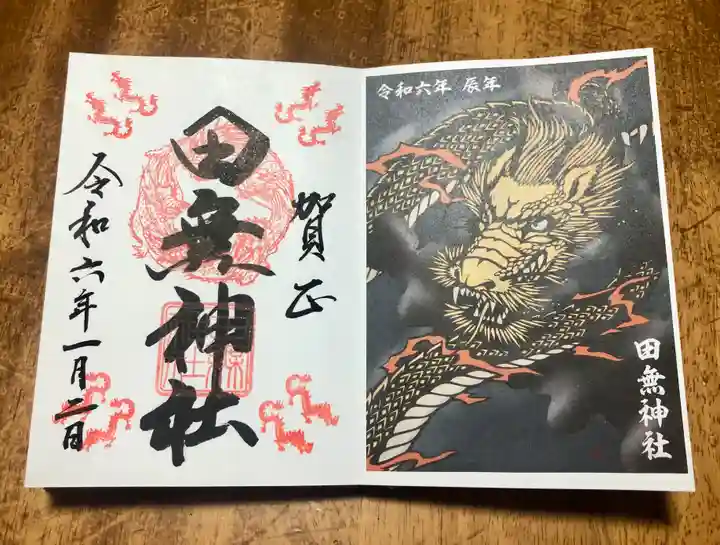 賀正
田無神社
令和六年一月二日
令和六年 辰年
田無神社